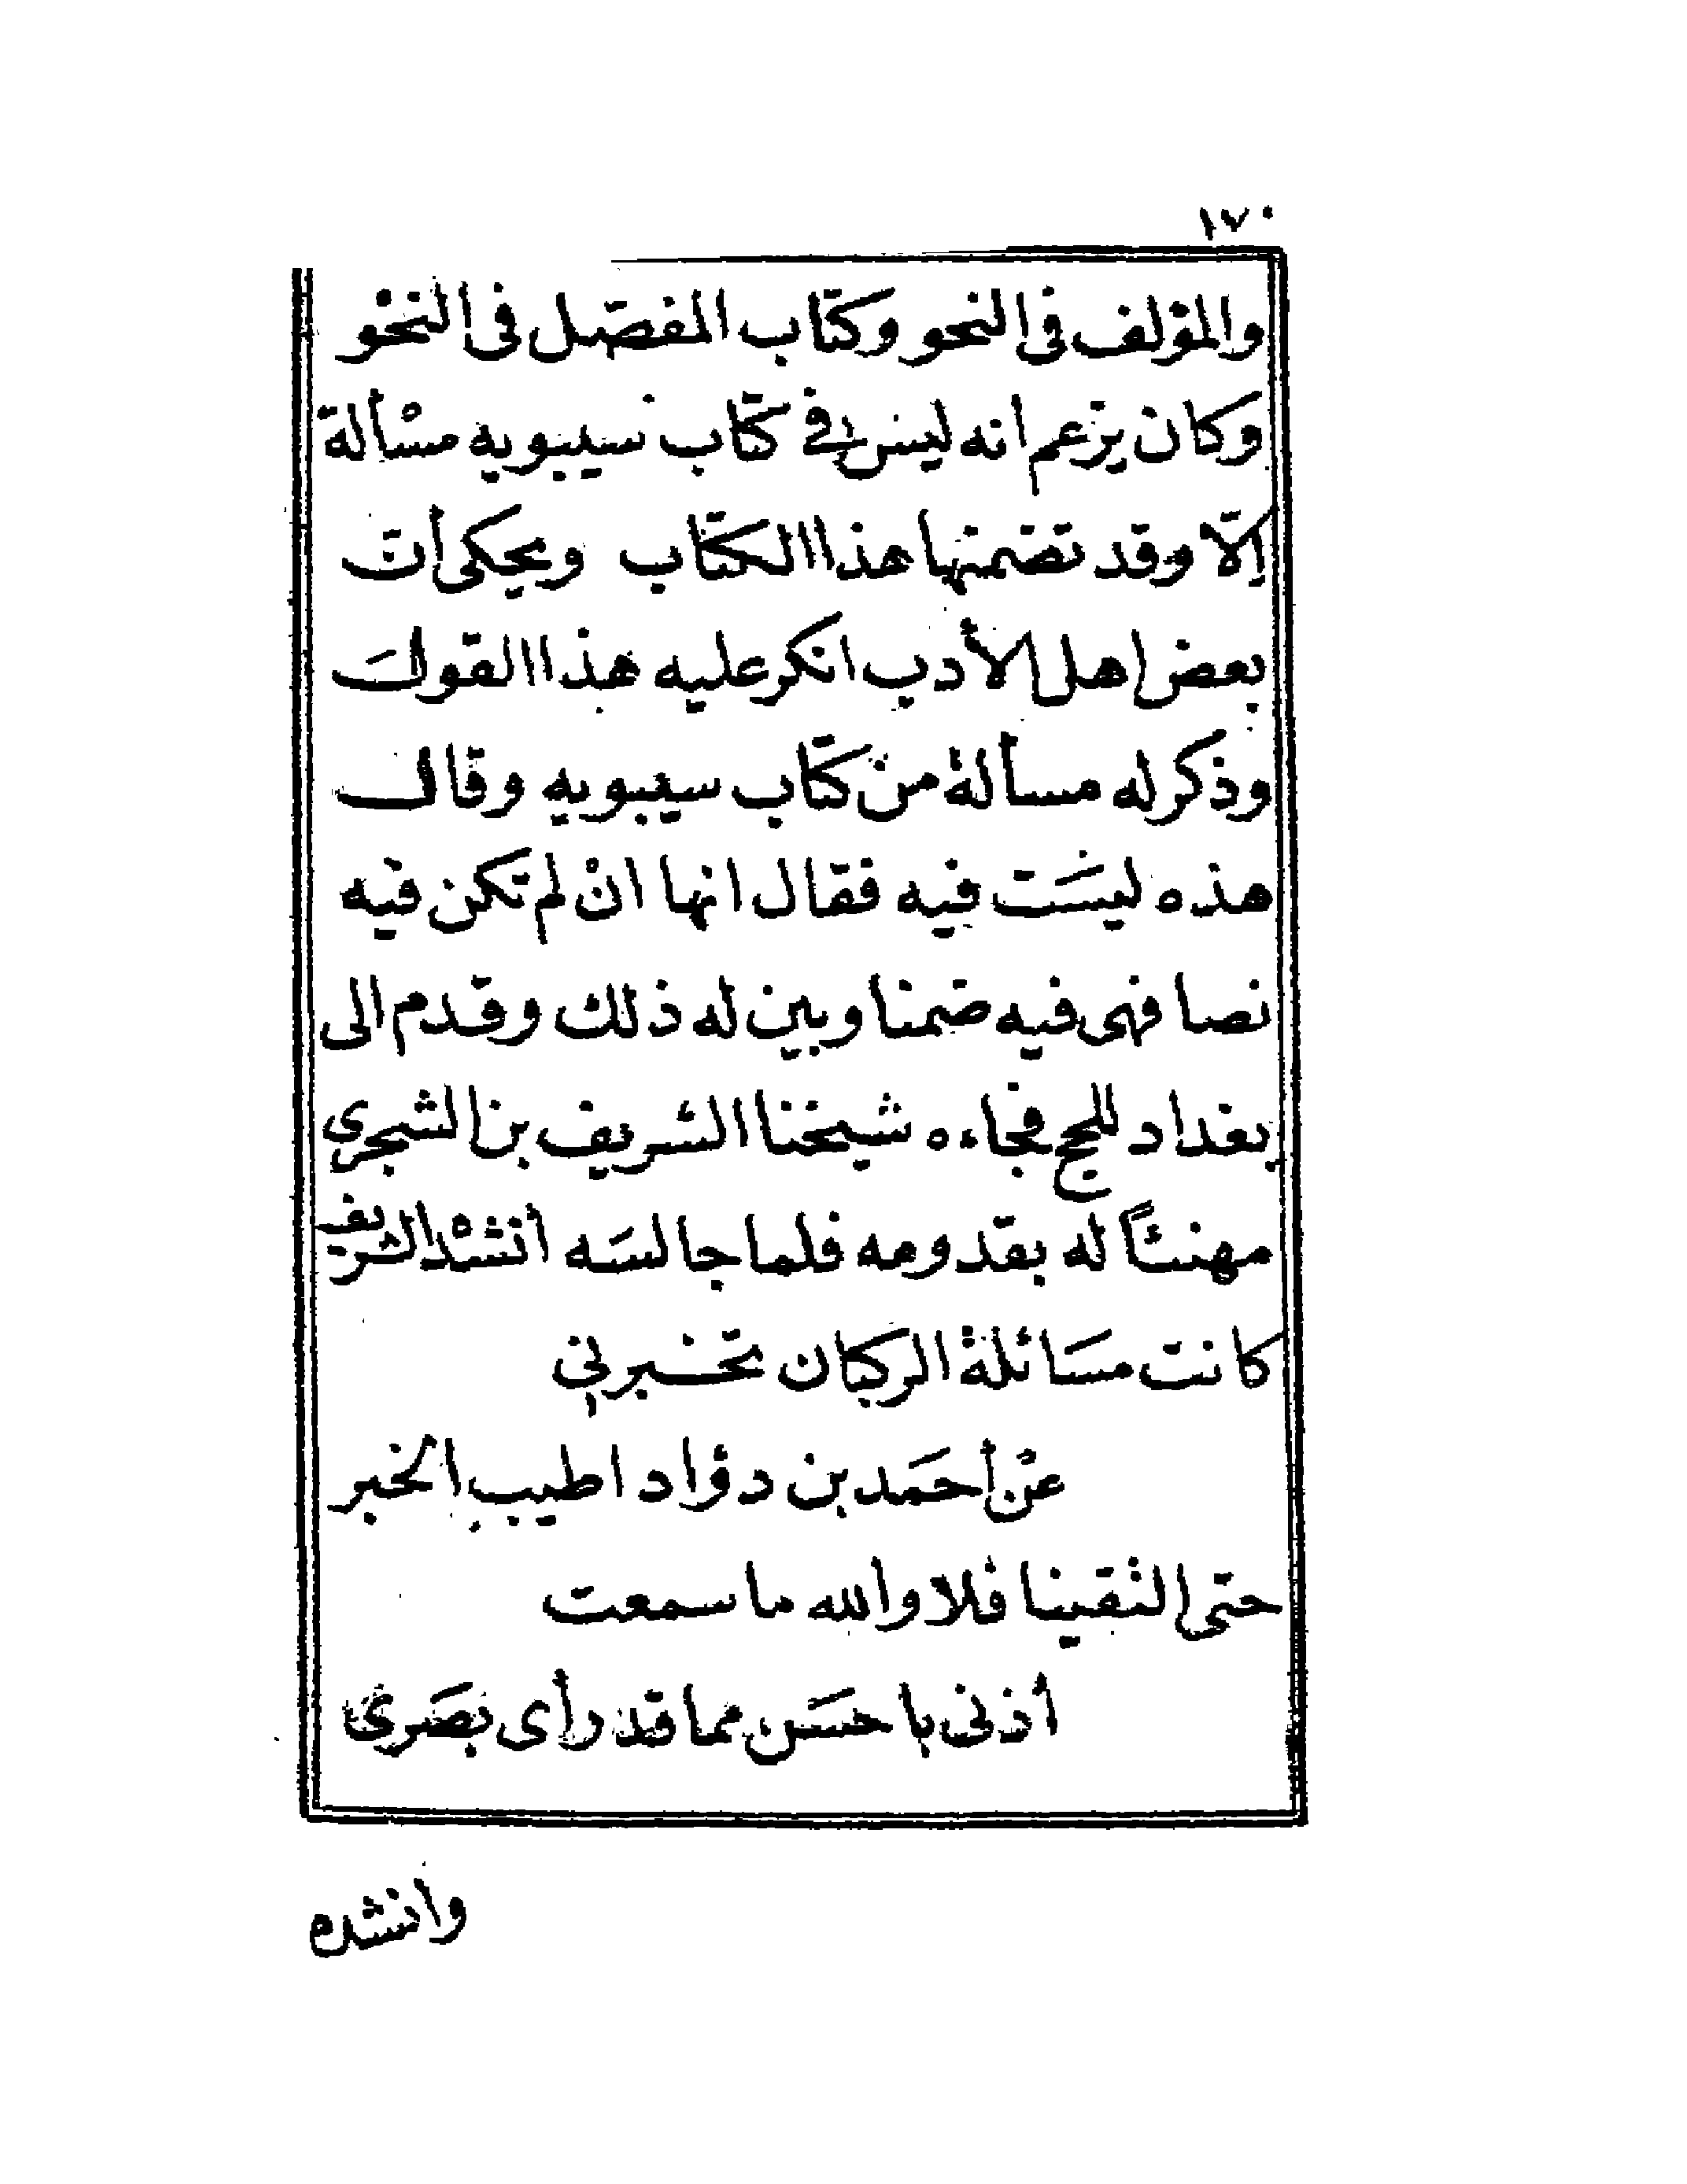 ١٧٠
والمؤلف فى النحو وكتاب المفصّل فى النحْو
وكان يزعم انه ليس فى كتاب سيبويه مسْألة
إلّا وقد تضمنها هذا الكتاب ويحكى أن
بعض اهل الأدب انكر عليه هذا القول
وذكر له مسألة من كتاب سيبويه وقال
هذه ليسَت فيه فقال انها انْ لم تكن فيه
نصا فهى فيه ضمنا وبين له ذلك وقدم الى
بغداد للحج فجاءه شيخنا الشريف بن الشجرى
مهنئاً له بقدومه فلما جالسَه أنشدْ الشريف
كانت مسَائلة الركبان تخبرنى
عنْ أحمَد بن دؤاد اطيب الخبر
حتى التقينا فلا والله ما سمعت
أذنى با حسَن مما قد رأى بصَرى
وأنشده